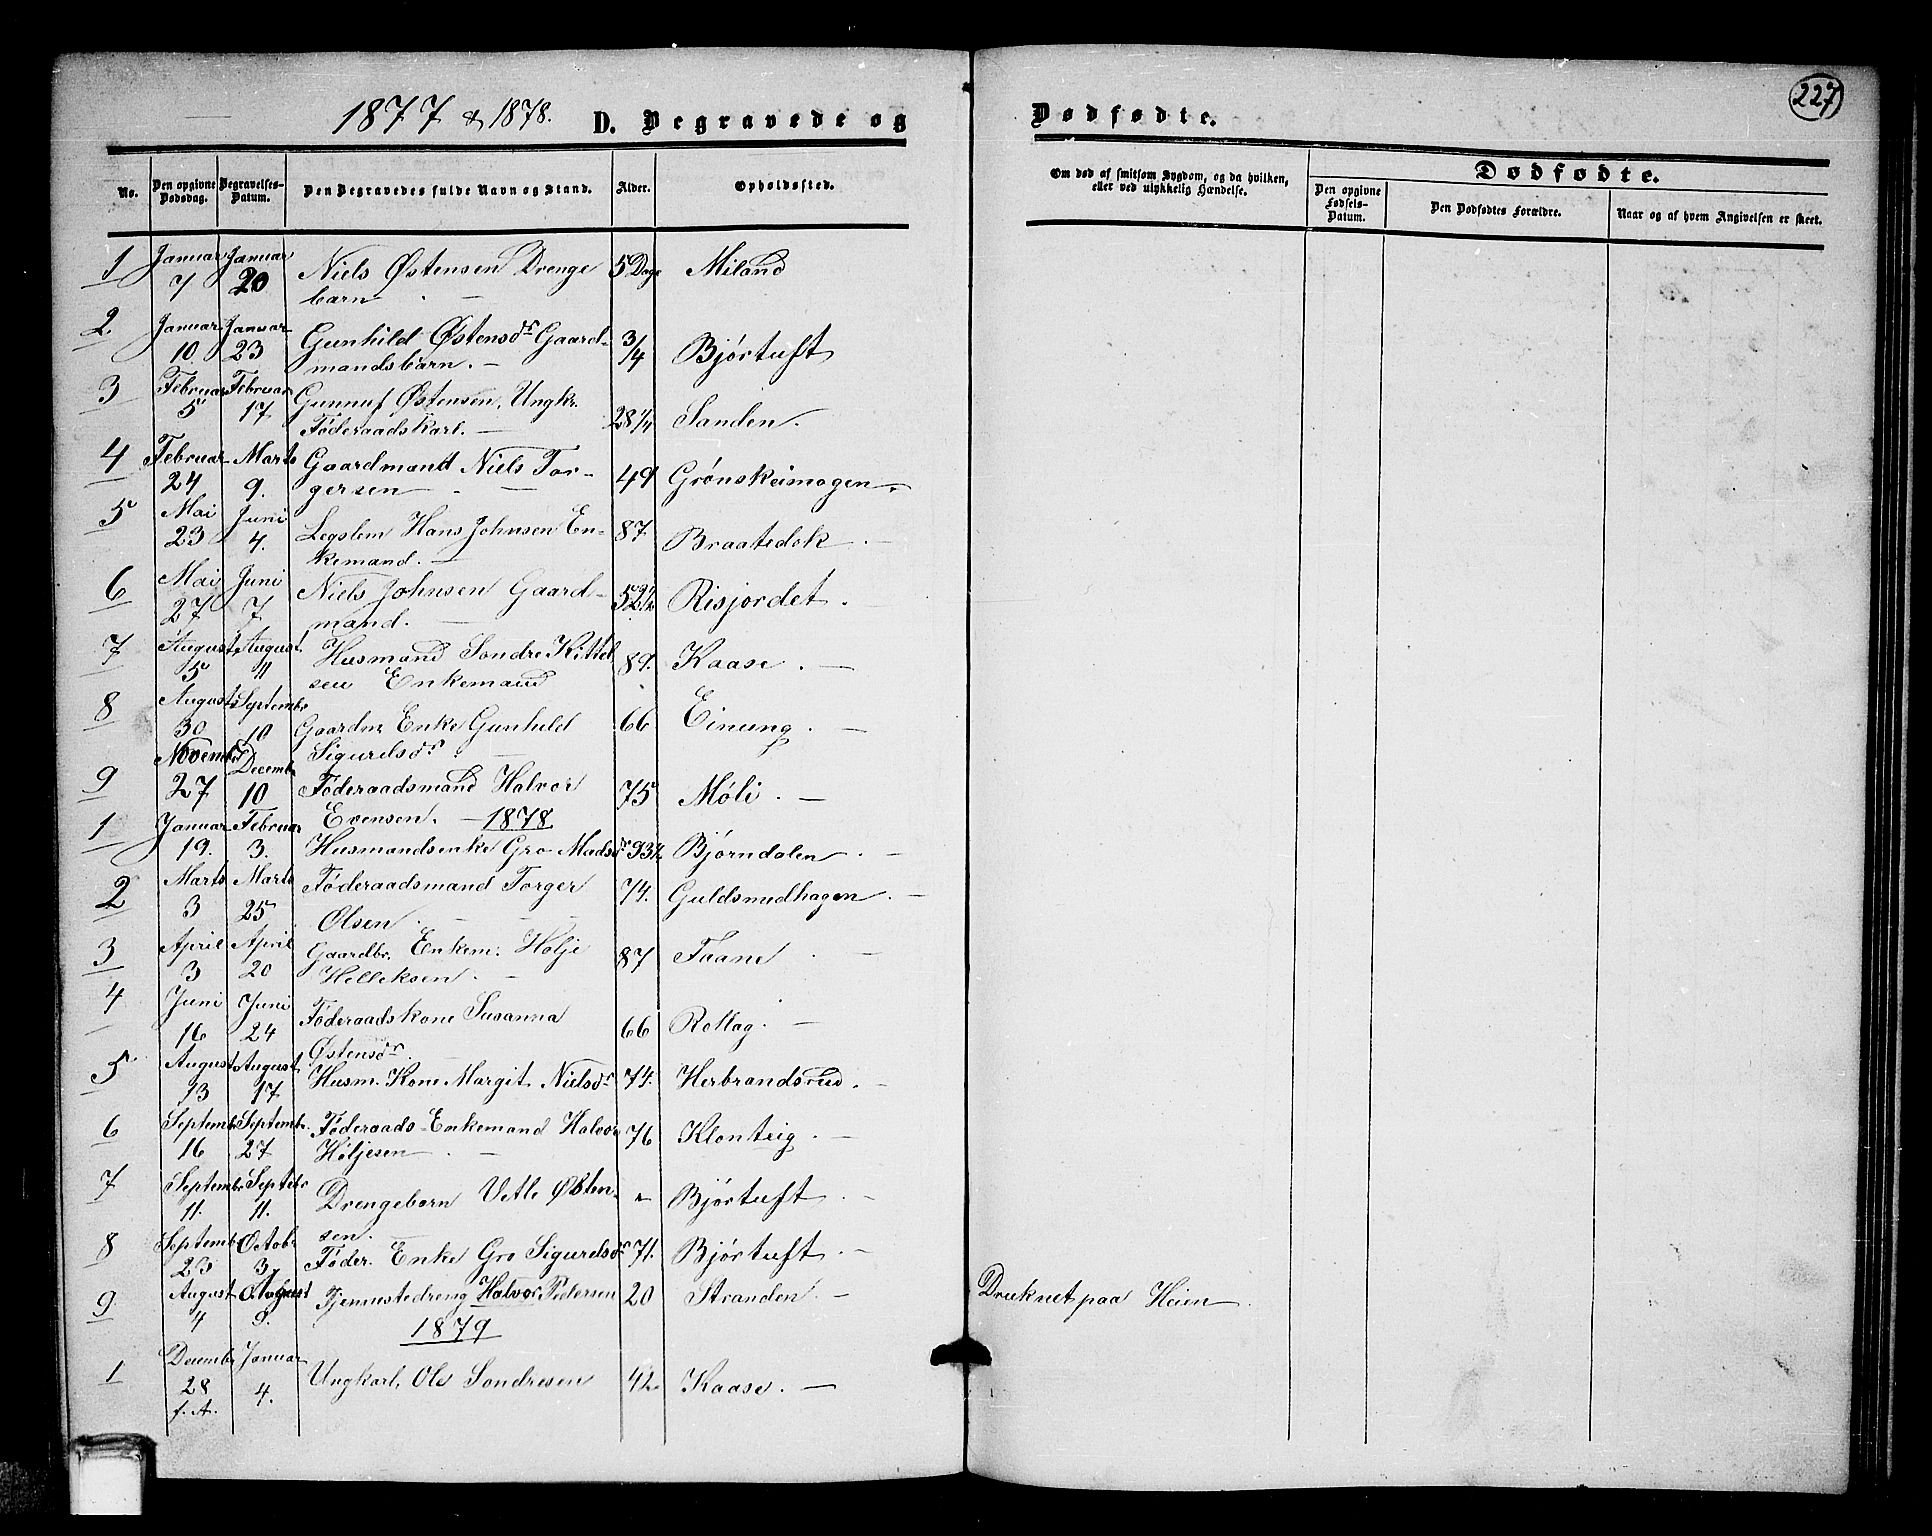 1877 & 1878. D. Begravede og
Dødfødte.
227
No.
Den opgivne Dødsdag.
Begravelses-Datum.
Den Begravedes fulde Navn og Stand.
Alder.
Opholdssted.
Om død af smitsom Sygdom, og da hvilken, eller ved ulykkelig Hændelse.
Dødfødte.
Den opgivne Fødsels-Datum.
Den Dødfødtes Forældre.
Naar og af hvem Angivelsen er skeet.
1 Januar Januar Niels Østensen Drenge 5 Dage Miland
7 20 barn
2. Januar Januar Gunhild Østensdr Gaard- 3/4 Bjørtuft
10. 23 mandsbarn.
3 Februar Februar Gunnuf Østensen, Ungkr. 28 1/4 Sanden.
5 17 Føderaadskarl.
4 Februar Marts Gaardmand Niels Tor- 49 Grønskeimogen.
24 9. gersen
5 Mai Juni Legslem Hans Johnsen En- 87 Braatedok
23 4. kemand.
6 Mai Juni Niels Johnsen Gaard- 52 1/2 Risjordet.
27 7 mand.
7 August August Husmand Sondre Kittel 89. Kaase.
5 11 sen Enkemand
8 August Septembr Gaardm Enke Gunhild 66 Einung.
30 10 Sigurdsdr
9 Novemb Decembr Føderaadsmand Halvor 75 Møli.
27 10 Evensen. 1878
1 Januar Februar Husmandsenke Gro Madsdr 93 1/2 Bjørndalen
19. 3.
2 Marts Marts Føderaadsmand Torger 74. Guldsmedhagen.
3 25 Olsen
3 April April Gaardbr. Enkem. Holje 87 Faane
3 20 Helleksen.
4 Juni Juni Føderaadskone Susanna 66 Rollag.
16 24 Østensdr.
5 August August Husm. Kone Margit Nielsdr 74. Herbrandsrud.
13 17
6 Septemb Septembr. Føderaads-Enkemand Halvor 76 Klonteig.
16 27 Høljesen
7 Septembr Septebr Drengebarn Vetle Østen- " Bjørtuft
11. 11. sen.
8 Septemb Octobr Føder. Enke Gro Sigurdsdr 71. Bjørtuft.
23 3
9. August August Tjenestedreng Halvor Pedersen 20 Stranden. Druknet paa Heien
4 9.
1879
1 Decembr Januar Ungkarl, Ole Sondresen 42 Kaase.
28 4.
f. A.